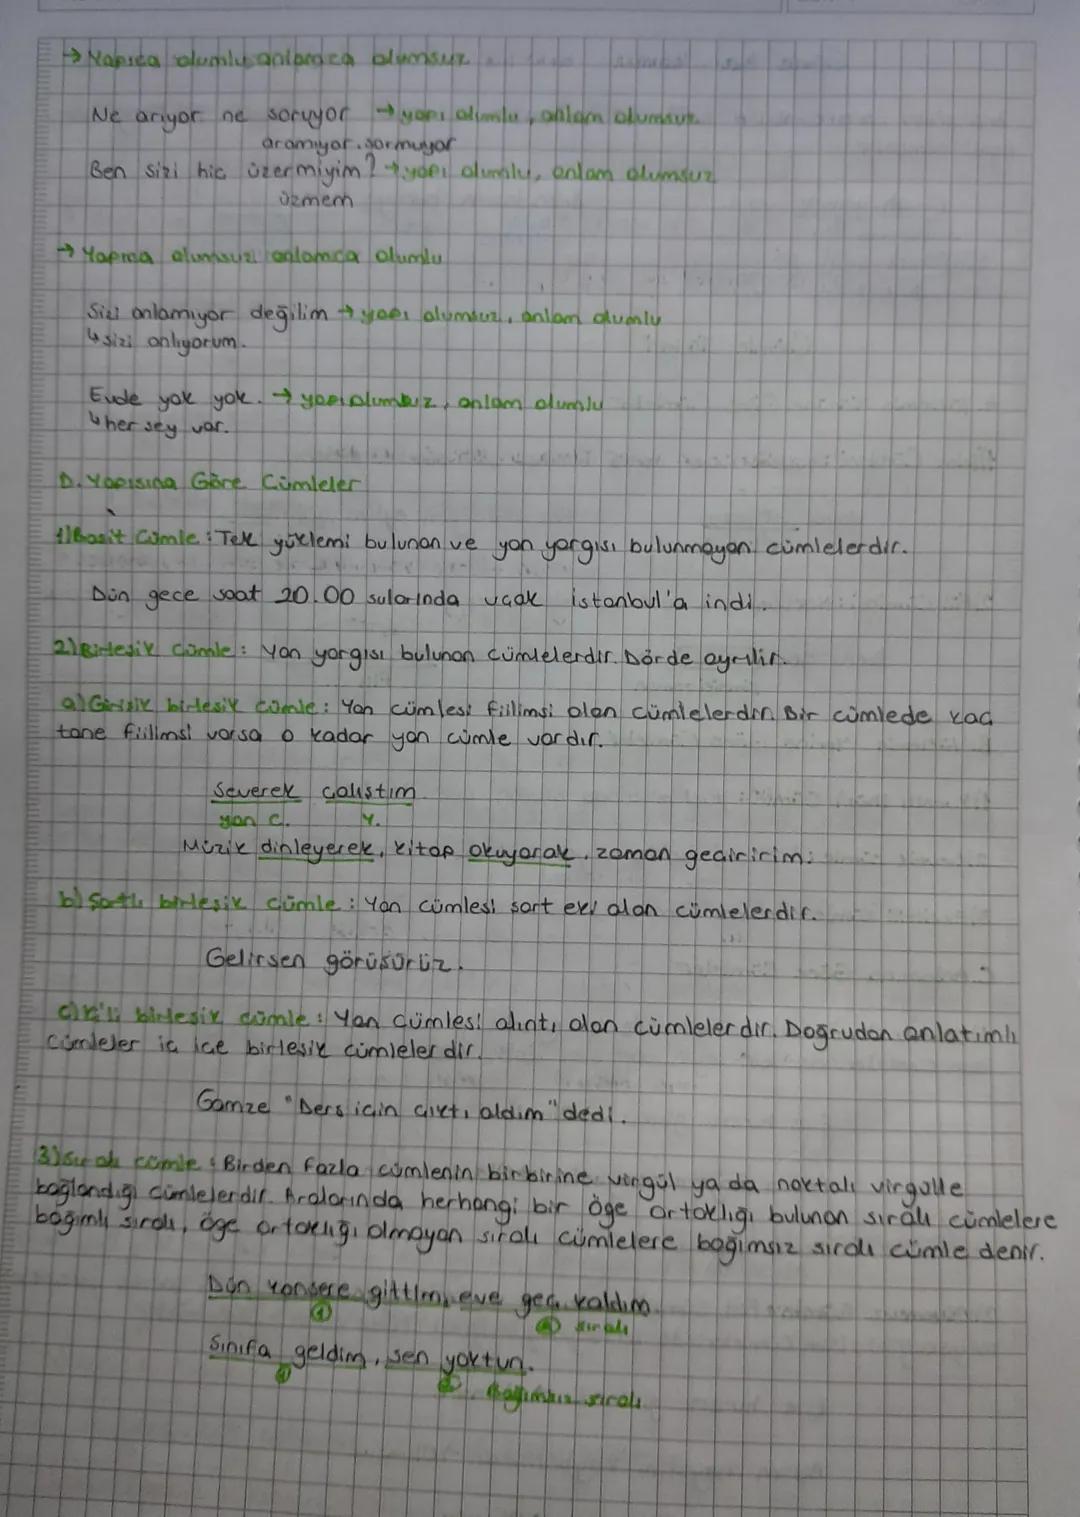 → Yapıca olumlu anlamca olumsuz
Ne arıyor ne soruyor → yapı olumlu, anlam olumsuz
aramıyor. sormuyor
Ben sizi hiç üzermiyim? → yapı olumlu, anlam olumsuz
üzmem
→ Yapıca olumsuz anlamca olumlu
Sizi anlamıyor değilim → yapı olumsuz, anlam olumlu
↳ sizi anlıyorum.
Evde yok yok. → yapı olumsuz, anlam olumlu
↳ her şey var.
D. Yapısına Göre Cümleler
1) Basit Cümle: Tek yüklemi bulunan ve yan yargısı bulunmayan cümlelerdir.
Dün gece saat 20.00 sularında uçak istanbul'a indi.
2) Birleşik Cümle: Yan yargısı bulunan cümlelerdir. Dörde ayrılır.
a) Girişik birleşik cümle: Yan cümlesi fiilimsi olan cümlelerdir. Bir cümlede kaç
tane fiilimsi varsa o kadar yan cümle vardır.
Severek çalıştım
yan c. Y.
Müzik dinleyerek, kitap okuyarak, zaman geçiririm.
b) Şartlı birleşik cümle: Yan cümlesi şart eki alan cümlelerdir.
Gelirsen görüşürüz.
c) Ki'li birleşik cümle: Yan cümlesi alıntı olan cümlelerdir. Doğrudan anlatımlı
cümleler iç içe birleşik cümlelerdir.
Gamze "Ders için çıktı aldım" dedi.
3) Sıralı cümle: Birden fazla cümlenin birbirine virgül ya da noktalı virgülle
bağlandığı cümlelerdir. Aralarında herhangi bir öge ortaklığı bulunan sıralı cümlelere
bağımlı sıralı, öge ortaklığı olmayan sıralı cümlelere bağımsız sıralı cümle denir.
Dün konsere gittim, eve geç kaldım.
① ② sıralı
Sınıfa geldim, sen yoktun.
① ② Bağımsız sıralı